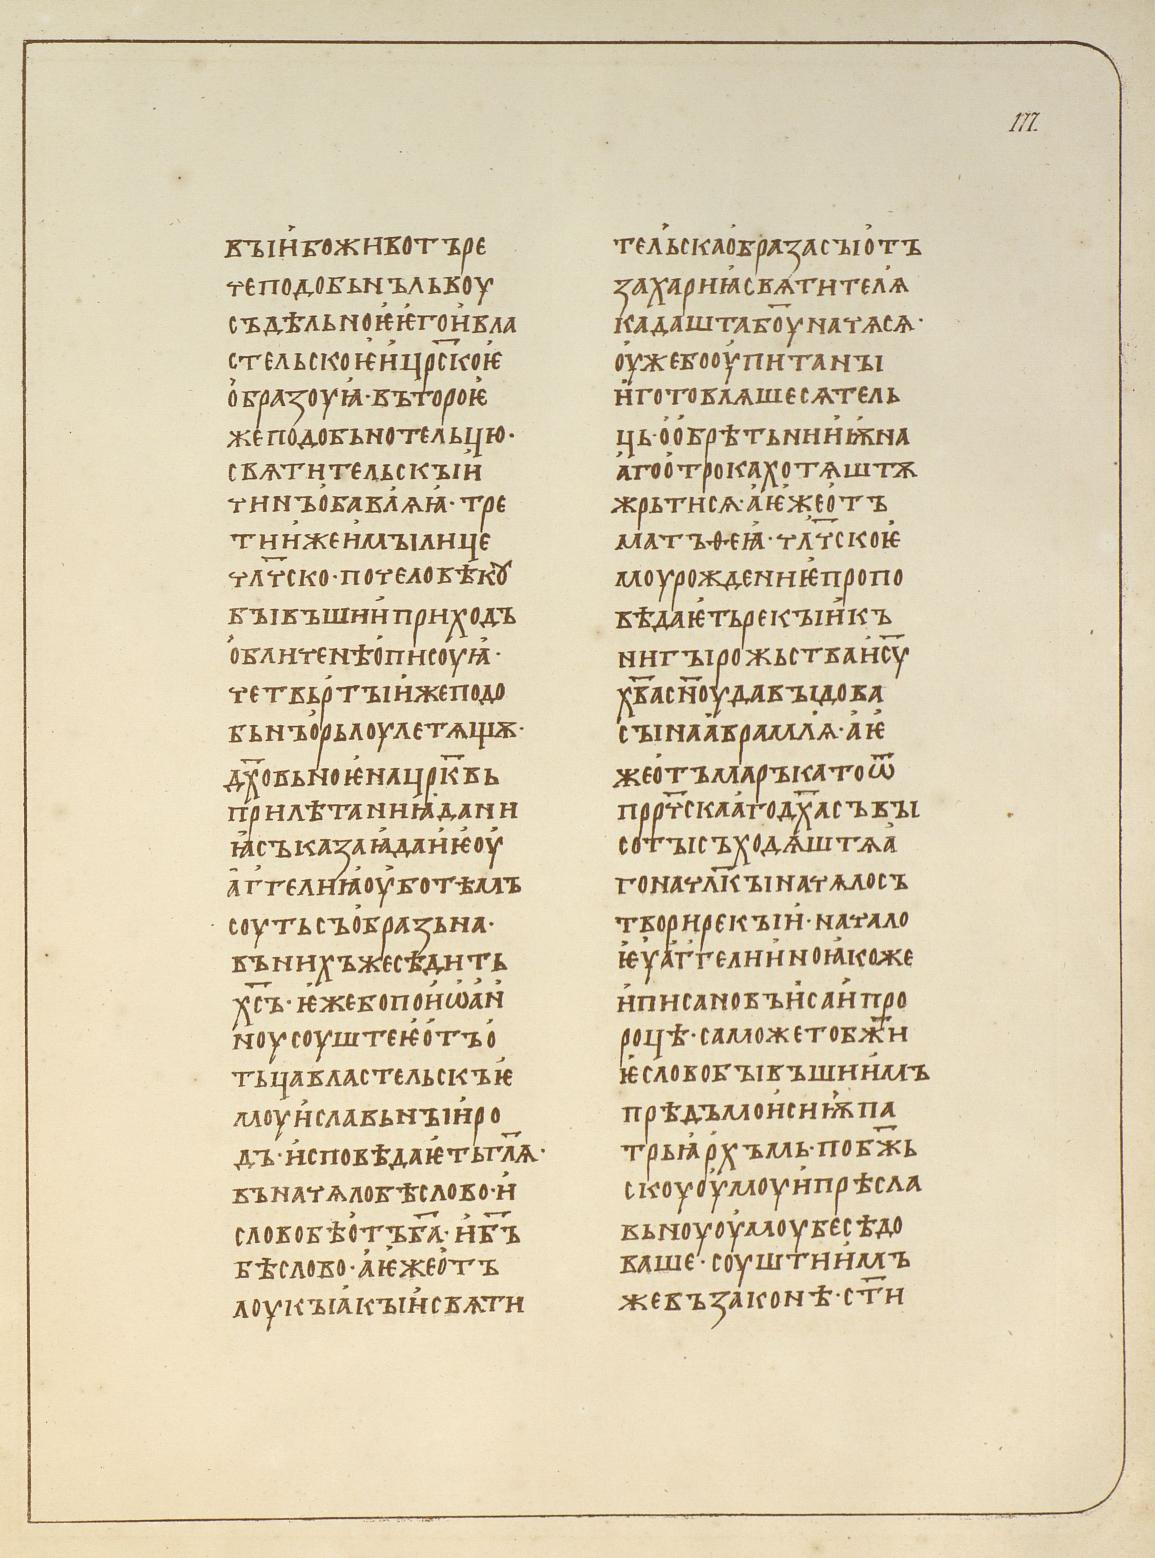 177.
въıи҆боживотърє
чєподобьнъльвоу
съдѣльноѥ҆ѥ҆гои҆вла
стєльскоѥ҆и҆цр҃скоѥ҆
о҆бразоуꙗ҆·вътороѥ҆
жєподобьнотєльцю·
свѧтитєльскъıи҆
чинъо҆бавлꙗѧ҆·трє
тии҆жєи҆мъıлицє
чл҃чско·почєловѣкꙋ
бъıвъшии҆приходъ
о҆бличєнѣо҆писоуꙗ҆·
чєтвьртъıи҆жєподо
бьнъо҆рьлоулєтѧщѫ·
дх҃овьноѥ҆нацр҃квь
прилѣтаниꙗ҆дани
ꙗ҆съказаꙗ҆даниѥ҆оу҆
а҆г҆гєлиꙗ҆оу҆ботѣмъ
соутьсъо҆бразьна·
вънихъжєсѣдить
хс҃ъ·ѥ҆жєбопои҆ѡа҆н
ноусоуштєѥ҆о҆тъо҆
тьцавластєльскъѥ҆
моуи҆славьнъıи҆ро
дъ·и҆сповѣдаѥ҆тьгл҃ѧ·
въначѧлобѣслово·и҆
словобѣо҆тъба҃·и҆бъ҃
бѣслово·а҆ѥ҆жєо҆тъ
лоукъıа҆къıи҆свѧти
тєльскао҆бразасъıо҆тъ
захариꙗ҆свѧтитєлѧ
кадаштабо҃уначѧсѧ·
оу҆жєбооу҆питанъı
и҆готовлꙗшєсѧтєль
ць·о҆о҆брѣтьнии҆ѭна
а҆гоо҆трокахотѧштѫ
жрьтисѧ·а҆ѥ҆жєо҆тъ
матъѳєꙗ҆·чл҃чскоѥ҆
моурождєниѥ҆пропо
вѣдаѥ҆тьрєкъıи҆къ
нигъıрожьстваи҆су҃
хв҃асн҃оудавъıдова
съıнаа҆врамлѧ·а҆ѥ҆
жєо҆тъмаръкатоѿ
прр҃чскаа҆годх҃асъвъı
сотъıсъходѧштѧа҆
гоначлк҃ъıначѧлосъ
творирєкъıи҆·начало
ѥ҆уа҆г҆гєлии҆ноꙗ҆кожє
и҆писановъи҆саи҆про
роцѣ·саможєтобж҃и
ѥ҆словобъıвъшии҆мъ
прѣдъмои҆сиѭпа
трьꙗ҆рхъмь·побж҃ь
скоуоу҆моуи҆прѣсла
вьноуоу҆моубєсѣдо
вашє·соуштии҆мъ
жєвъзаконѣ·ст҃и